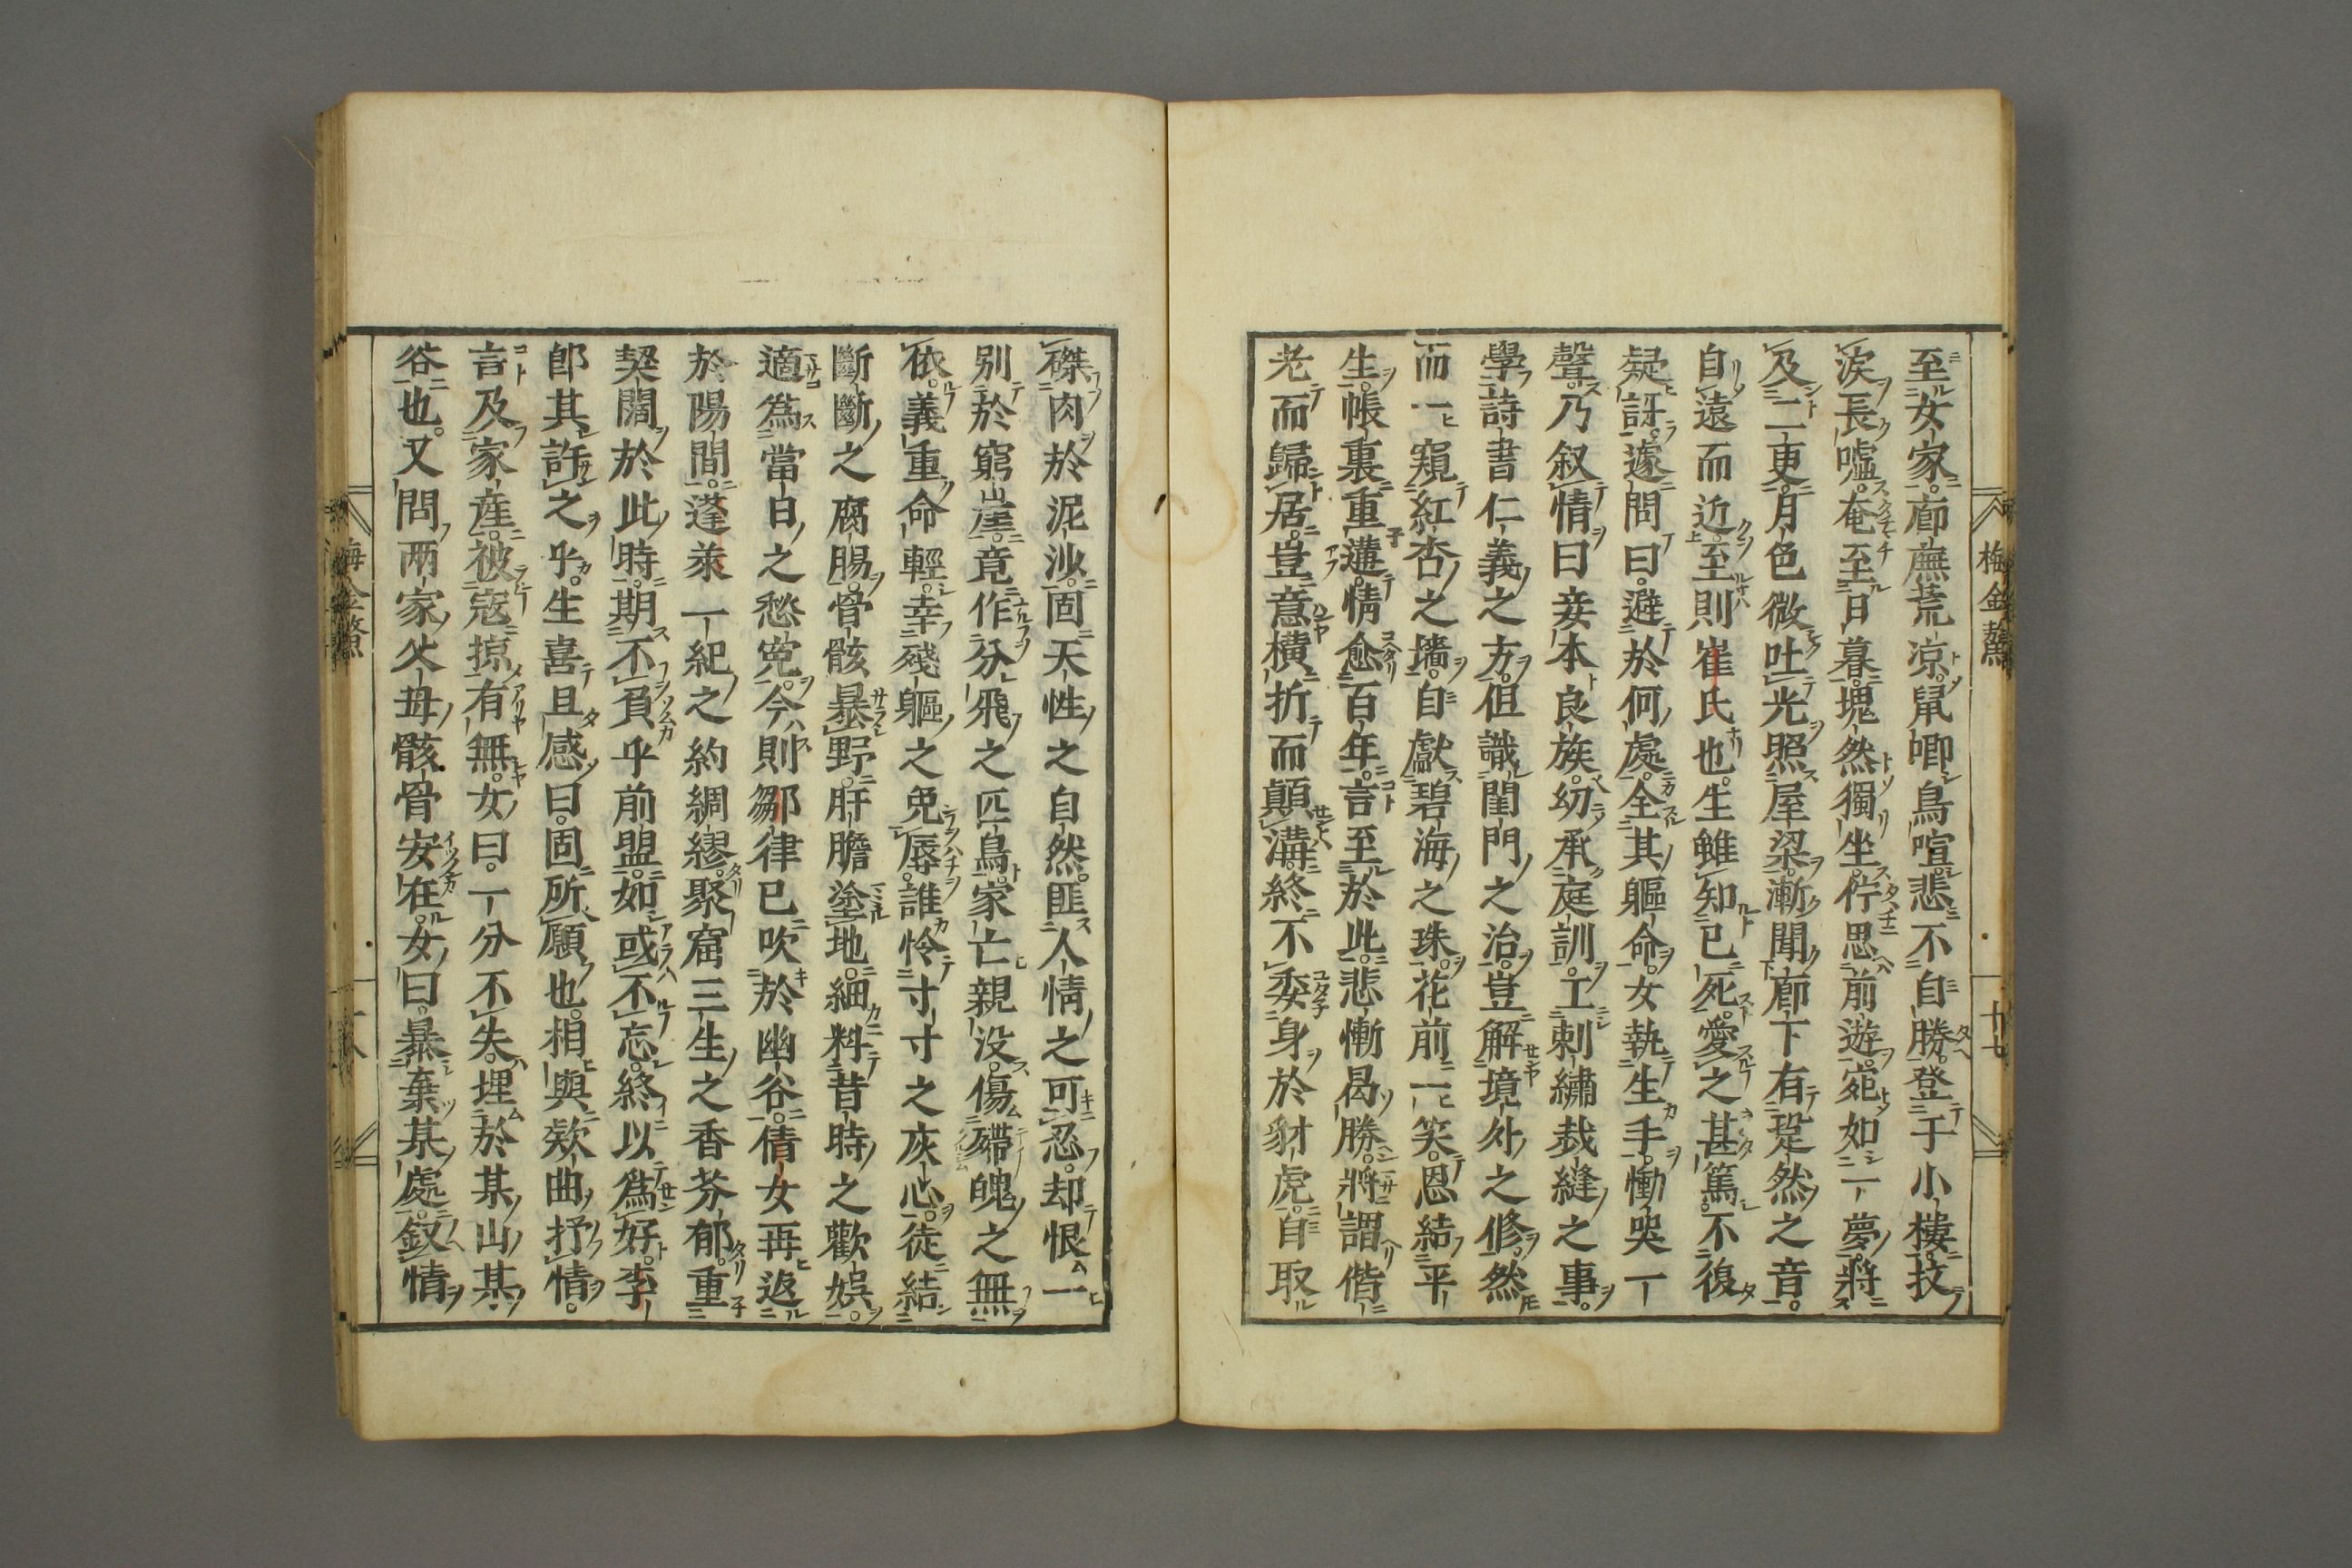 至女家廊廡荒凉鼠喞鳥喧悲不自勝登于小樓抆
淚長噓奄至日暮塊然獨坐佇思前遊宛如一夢將
及二更月色微吐光照屋梁漸聞廊下有跫然之音
自遠而近至則崔氏也生雖知已死愛之甚篤不復
疑訝遽問曰避於何處全其軀命女執生手慟哭一
聲乃叙情曰妾本良族幼承庭訓工刺繡裁縫之事
學詩書仁義之方但識閨門之治豈解境外之修然
而一窺紅杏之墻自獻碧海之珠花前一笑恩結平
生帳裏重遘情愈百年言至於此悲慚曷勝將謂偕
老而歸居豈意橫折而顚溝終不委身於豺虎自取
磔肉於泥沙固天性之自然匪人情之可忍却恨一
別於窮崖竟作分飛之匹鳥家亡親没傷㱟魄之無
依義重命輕幸殘軀之免辱誰怜寸寸之灰心徒結
斷斷之腐腸骨骸暴野肝膽塗地細料昔時之歡娯
適爲當日之愁寃今則鄒律已吹於幽谷倩女再返
於陽間蓬萊一紀之約綢繆聚窟三生之香芬郁重
契闊於此時期不負乎前盟如或不忘終以爲好李
郎其許之乎生喜且感曰固所願也相與欵曲抒情
言及家產被寇掠有無女曰一分不失埋於某山某
谷也又問兩家父母骸骨安在女曰暴棄某處敘情
梅金鰲
十七
梅金鰲
十八